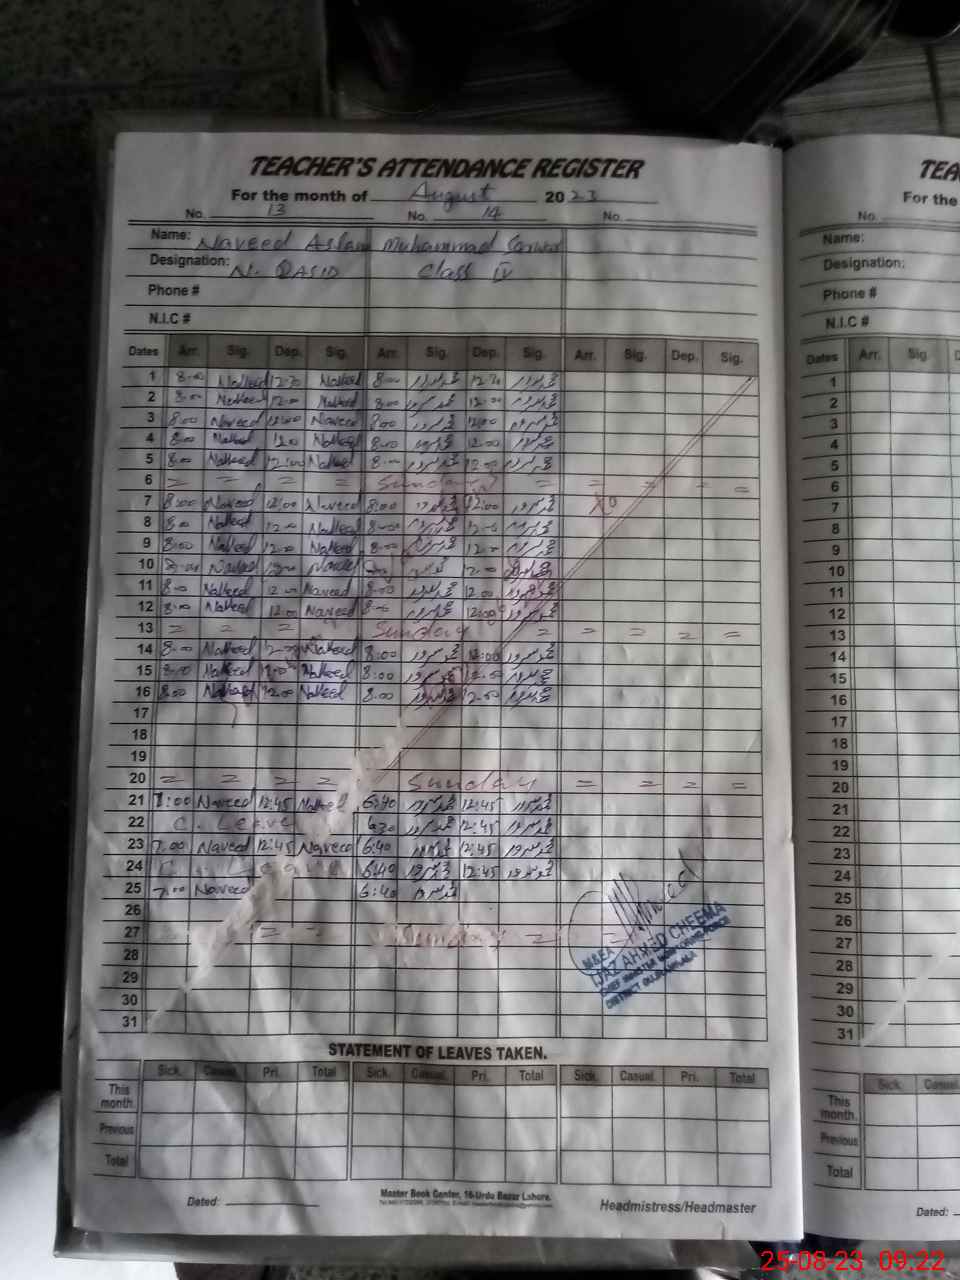 TEACHER'S ATTENDANCE REGISTER
For the month of August 2023
No. 13 No. 14 No.
Name: Naveed Aslam Muhammad Sarwar
Designation: N. QASID Class IV
Phone #
N.I.C #
Dates Arr. Sig. Dep. Sig. Arr. Sig. Dep. Sig. Arr. Sig. Dep. Sig.
1 8:00 Naveed 12:30 Naveed 8:00 محمد سرور 12:30 محمد سرور
2 8:00 Naveed 12:00 Naveed 8:00 محمد سرور 12:00 محمد سرور
3 8:00 Naveed 12:00 Naveed 8:00 محمد سرور 12:00 محمد سرور
4 8:00 Naveed 12:00 Naveed 8:00 محمد سرور 12:00 محمد سرور
5 8:00 Naveed 12:00 Naveed 8:00 محمد سرور 12:00 محمد سرور
6 = = = = Sunday = = = =
7 8:00 Naveed 12:00 Naveed 8:00 محمد سرور 12:00 محمد سرور
8 8:00 Naveed 12:00 Naveed 8:00 محمد سرور 12:00 محمد سرور
9 8:00 Naveed 12:00 Naveed 8:00 محمد سرور 12:00 محمد سرور
10 8:00 Naveed 12:00 Naveed 12:00
11 8:00 Naveed 12:00 Naveed 8:00 محمد سرور 12:00 محمد سرور
12 8:00 Naveed 12:00 Naveed 8:00 محمد سرور 12:00 محمد سرور
13 = = = Sunday = = = = =
14 8:00 Naveed 12:00 Naveed 8:00 محمد سرور 12:00 محمد سرور
15 8:00 Naveed 12:00 Naveed 8:00 محمد سرور 12:00 محمد سرور
16 8:00 Naveed 12:00 Naveed 8:00 محمد سرور 12:00 محمد سرور
17
18
19
20 = = = = Sunday = = = =
21 7:00 Naveed 12:45 Naveed 6:40 محمد سرور 12:45 محمد سرور
22 C. Leave 6:30 محمد سرور 12:45 محمد سرور
23 7:00 Naveed 12:45 Naveed 6:40 محمد سرور 12:45 محمد سرور
24 C. Leave 6:40 محمد سرور 12:45 محمد سرور
25 7:00 Naveed 6:40 محمد سرور
26
27 = Sunday =
28
29
30
31
M&EA
IJAZ AHMED CHEEMA
CHIEF MINISTER MONITORING FORCE
DISTRICT GUJRANWALA
STATEMENT OF LEAVES TAKEN.
Sick. Casual. Pri. Total Sick. Casual. Pri. Total Sick. Casual. Pri. Total
This month.
Previous
Total
Dated:
Master Book Center, 16-Urdu Bazar Lahore.
Headmistress/Headmaster
TEA
For the
No.
Name:
Designation:
Phone #
N.I.C #
Dates Arr. Sig.
1
2
3
4
5
6
7
8
9
10
11
12
13
14
15
16
17
18
19
20
21
22
23
24
25
26
27
28
29
30
31
Sick. Casual
This month.
Previous
Total
Dated:
25-08-23 09:22